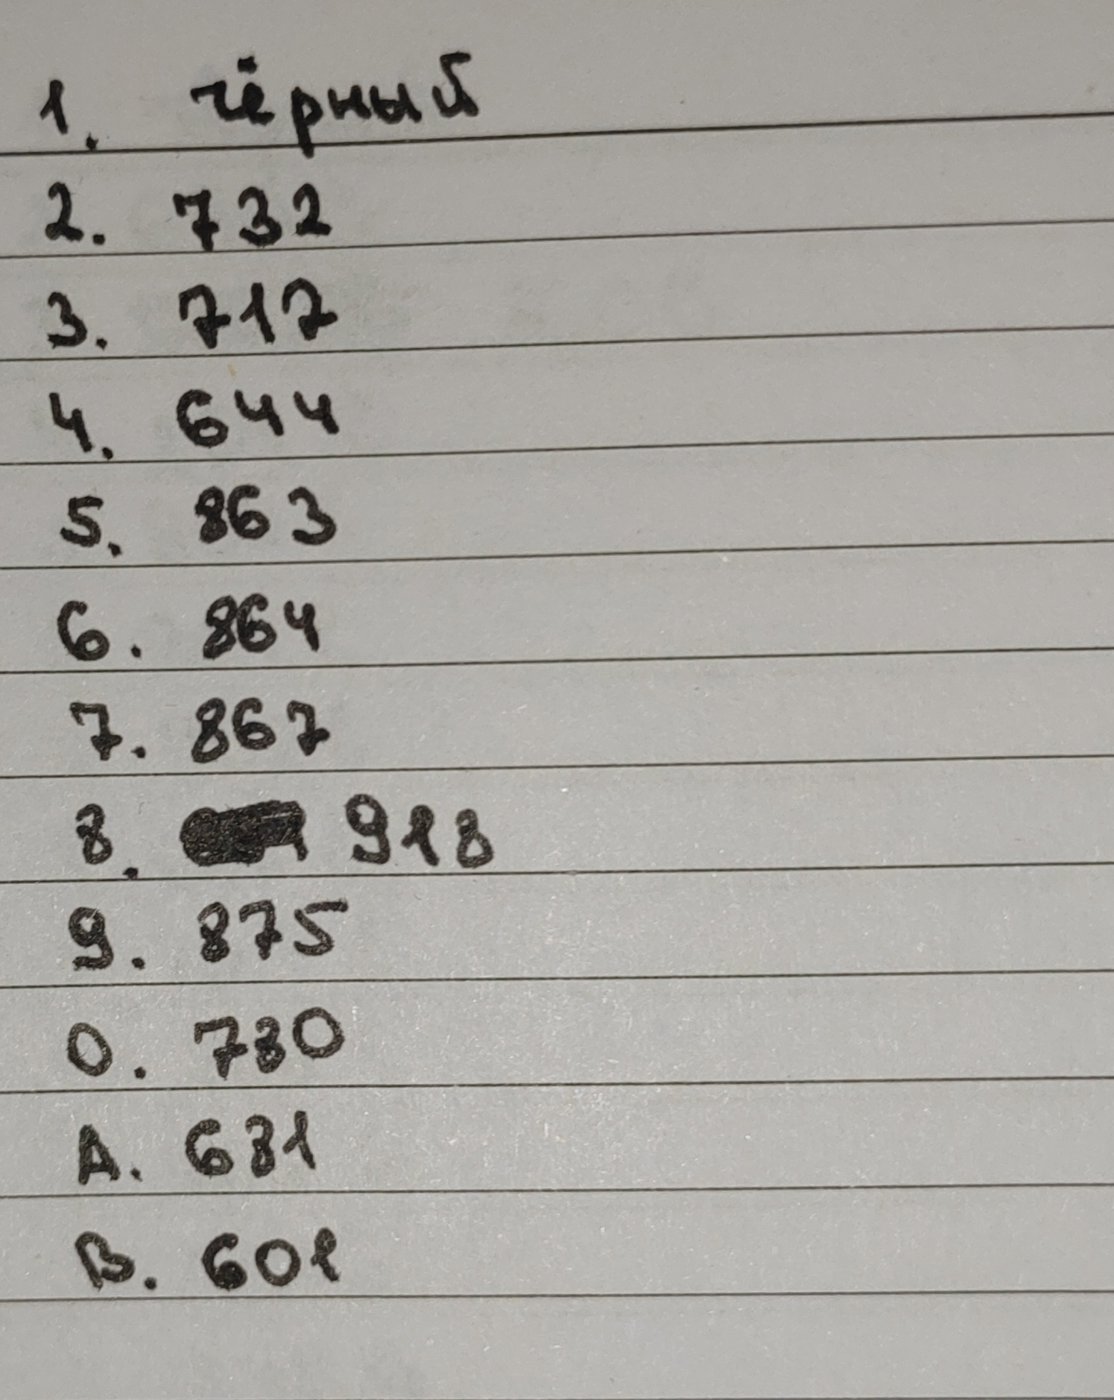 1. чёрный
2. 732
3. 717
4. 644
5. 863
6. 864
7. 867
8. 918
9. 875
0. 780
A. 681
B. 601